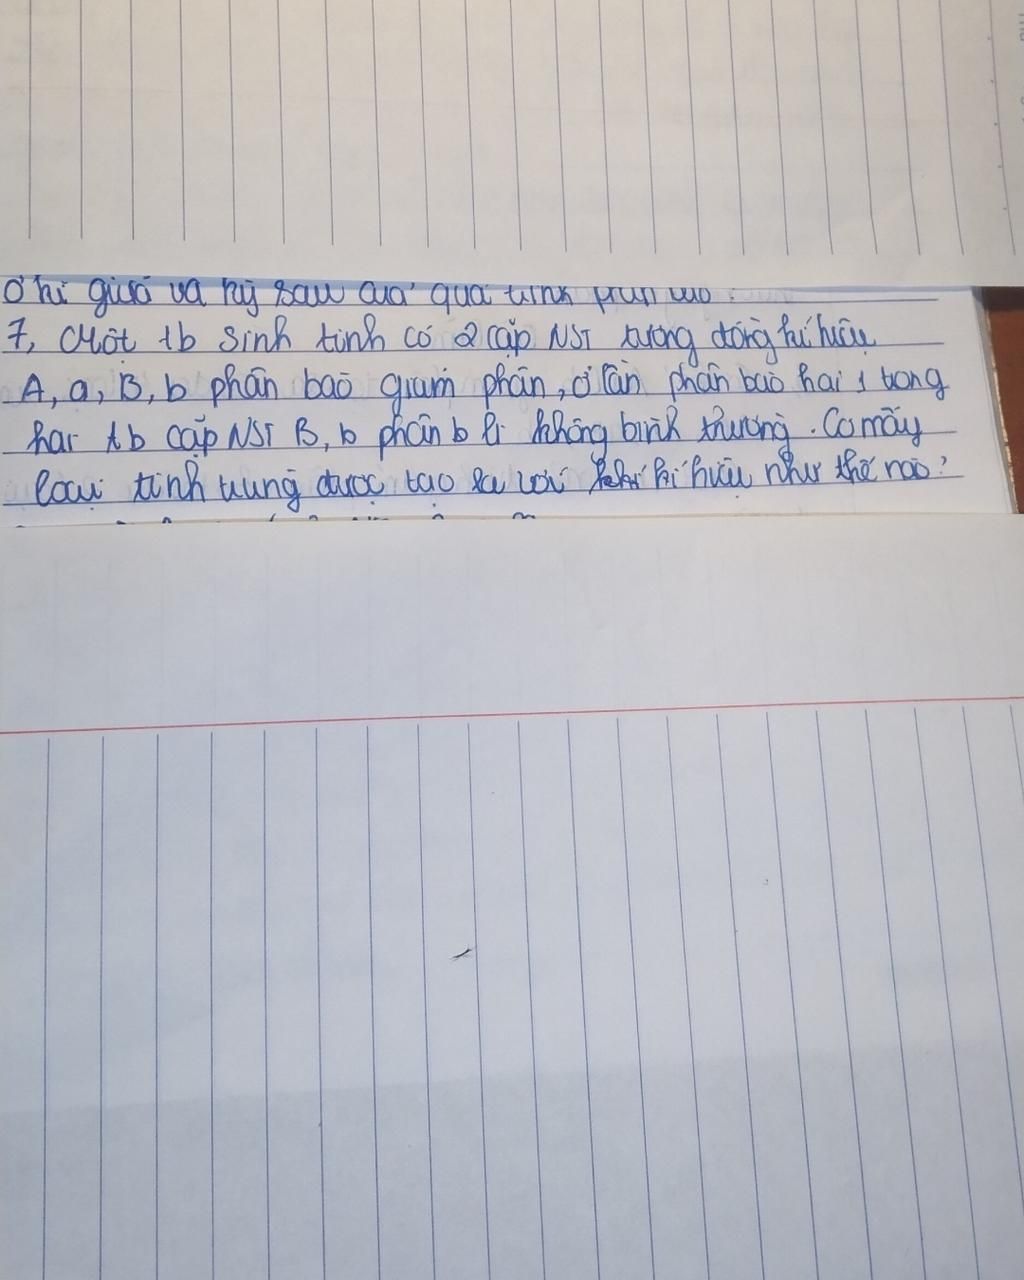 ở kì giữa và kỳ sau của quá trình phân bào.
7, Một tb sinh tinh có 2 cặp NST tương đồng kí hiệu
A, a, B, b phân bào giảm phân, ở lần phân bào hai 1 trong
hai tb cặp NST B, b phân b li không bình thường. Có mấy
loại tinh trùng được tạo ra với kí hiệu như thế nào?